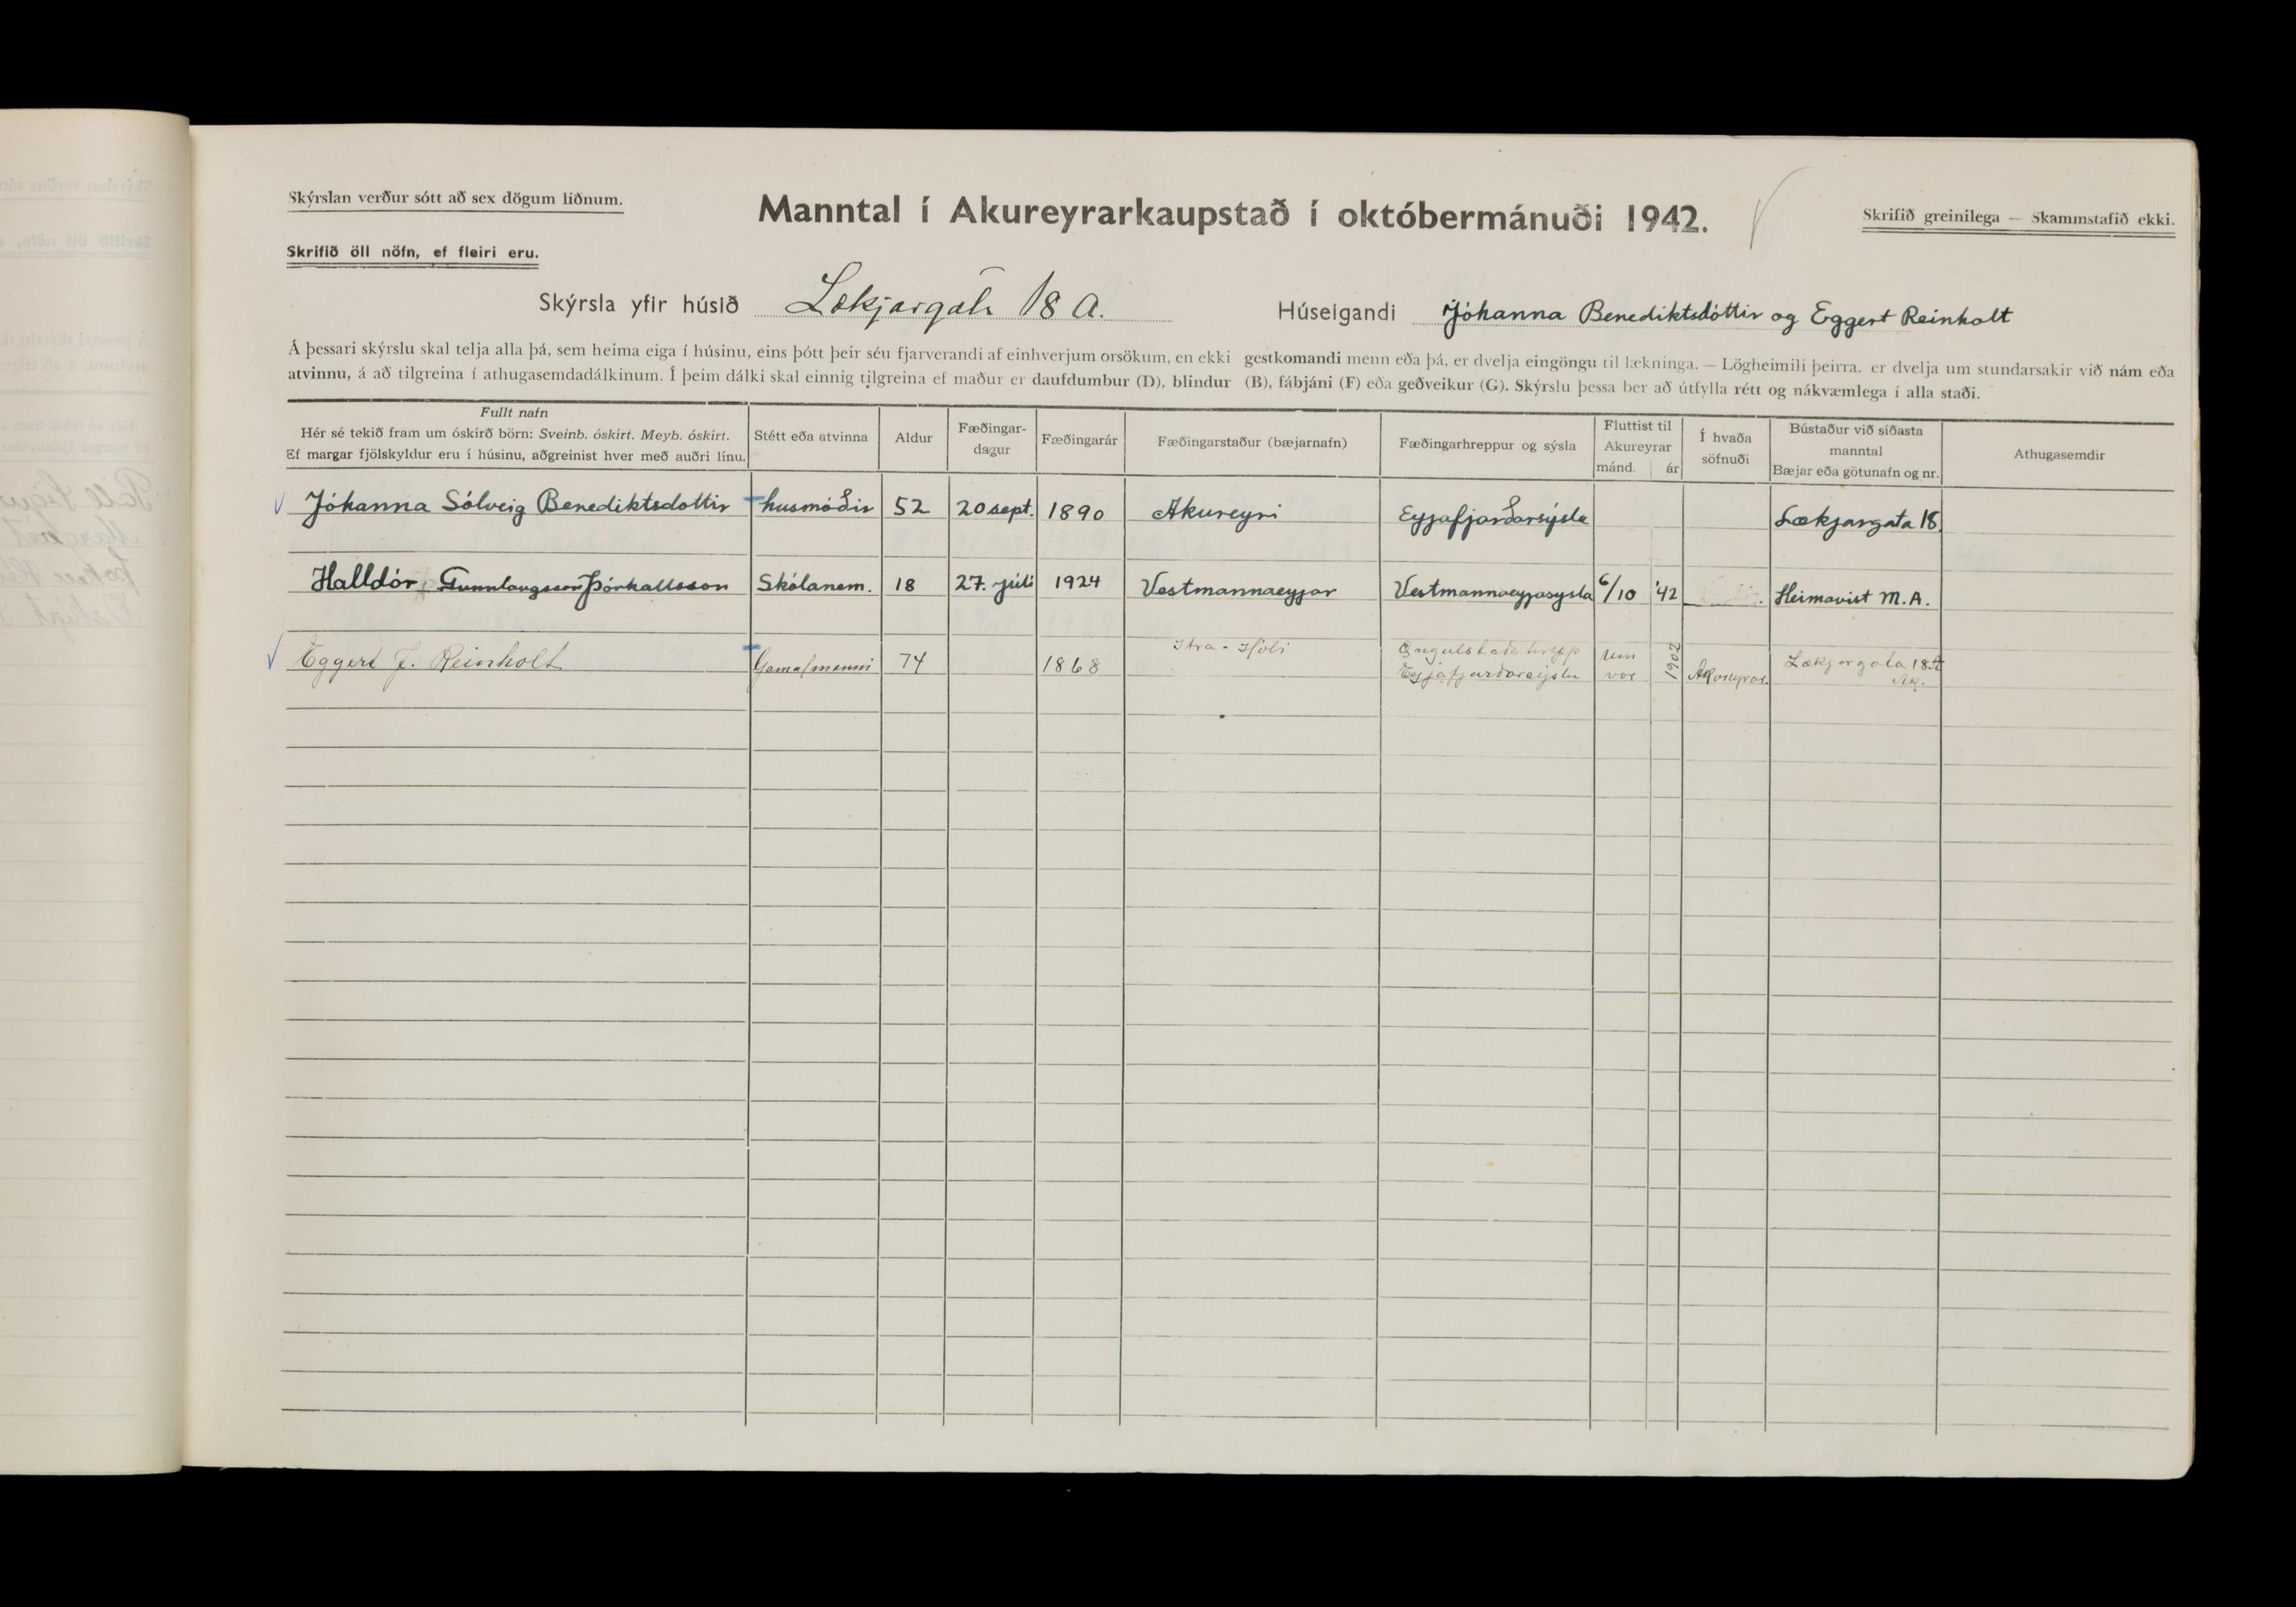 Skýrslan verður sótt að sex dögum liðnum.
Manntal í Akureyrarkaupstað í októbermánuði 1942.
Skrifið greinilega — Skammstafið ekki.
Skrifið öll nöfn, ef fleiri eru.
Skýrsla yfir húsið Lækjargata 18 A.
Húseigandi Jóhanna Benediktsdóttir og Eggert Reinholt
Á þessari skýrslu skal telja alla þá, sem heima eiga í húsinu, eins þótt þeir séu fjarverandi af einhverjum orsökum, en ekki gestkomandi menn eða þá, er dvelja eingöngu til lækninga. — Lögheimili þeirra, er dvelja um stundarsakir við nám eða
atvinnu, á að tilgreina í athugasemdadálkinum. Í þeim dálki skal einnig tilgreina ef maður er daufdumbur (D), blindur (B), fábjáni (F) eða geðveikur (G). Skýrslu þessa ber að útfylla rétt og nákvæmlega í alla staði.
Fullt nafn
Hér sé tekið fram um óskírð börn: Sveinb. óskírt. Meyb. óskírt.
Ef margar fjölskyldur eru í húsinu, aðgreinist hver með auðri línu.
Stétt eða atvinna
Aldur
Fæðingar-
dagur
Fæðingarár
Fæðingarstaður (bæjarnafn)
Fæðingarhreppur og sýsla
Fluttist til
Akureyrar
mánd. ár
Í hvaða
söfnuði
Bústaður við síðasta
manntal
Bæjar eða götunafn og nr.
Athugasemdir
Jóhanna Sólveig Benediktsdottir húsmóðir 52 20 sept. 1890 Akureyri Eyjafjarðarsýsla Lækjargata 18.
Halldór Gunnlaugsson Þórhallsson Skólanem. 18 27. júlí 1924 Vestmannaeyjar Vestmannaeyjasýsla 6/10 '42 Heimavist M.A.
Eggert J. Reinholt Gamalmenni 74 1868 Itra-Hóli Öngulstaðahrepp
Eyjafjarðarsýslu um
vor 1902 Akureyrar. Lækjargata 18 A
Ak.